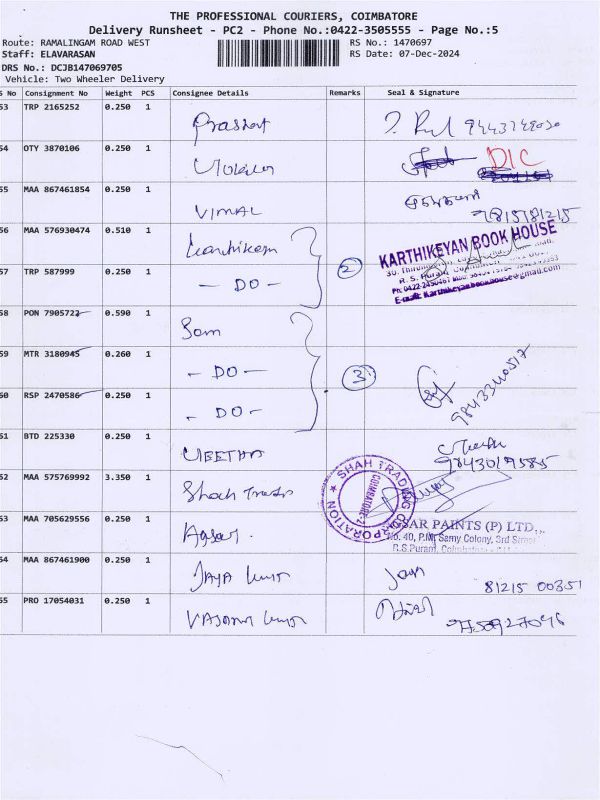 THE PROFESSIONAL COURIERS, COIMBATORE
Delivery Runsheet - PC2 - Phone No.:0422-3505555 - Page No.:5
Route: RAMALINGAM ROAD WEST RS No.: 1470697
Staff: ELAVARASAN RS Date: 07-Dec-2024
DRS No.: DCJB147069705
Vehicle: Two Wheeler Delivery
S No Consignment No Weight PCS Consignee Details Remarks Seal & Signature
53 TRP 2165252 0.250 1 Prashant
54 OTY 3870106 0.250 1 DIC
55 MAA 867461854 0.250 1 VIMAL 9815181215
56 MAA 576930474 0.510 1 Karthikeyan KARTHIKEYAN BOOK HOUSE
57 TRP 587999 0.250 1 - DO - 2
R. S. Puram, Coimbatore
E-mail: Karthikeyanbookhouse@gmail.com
58 PON 7905722 0.590 1 Sam
59 MTR 3180945 0.260 1 - DO - 3
60 RSP 2470586 0.250 1 - DO - 9843340517
61 BTD 225330 0.250 1 9843019585
62 MAA 575769992 3.350 1 Shah Trade SHAH TRADING CORPORATION COIMBATORE-2
63 MAA 705629556 0.250 1 SAR PAINTS (P) LTD.,
No. 40, P.M. Samy Colony, 3rd Street
R.S.Puram, Coimbatore
64 MAA 867461900 0.250 1 JAYA Jaya 81215 00351
65 PRO 17054031 0.250 1